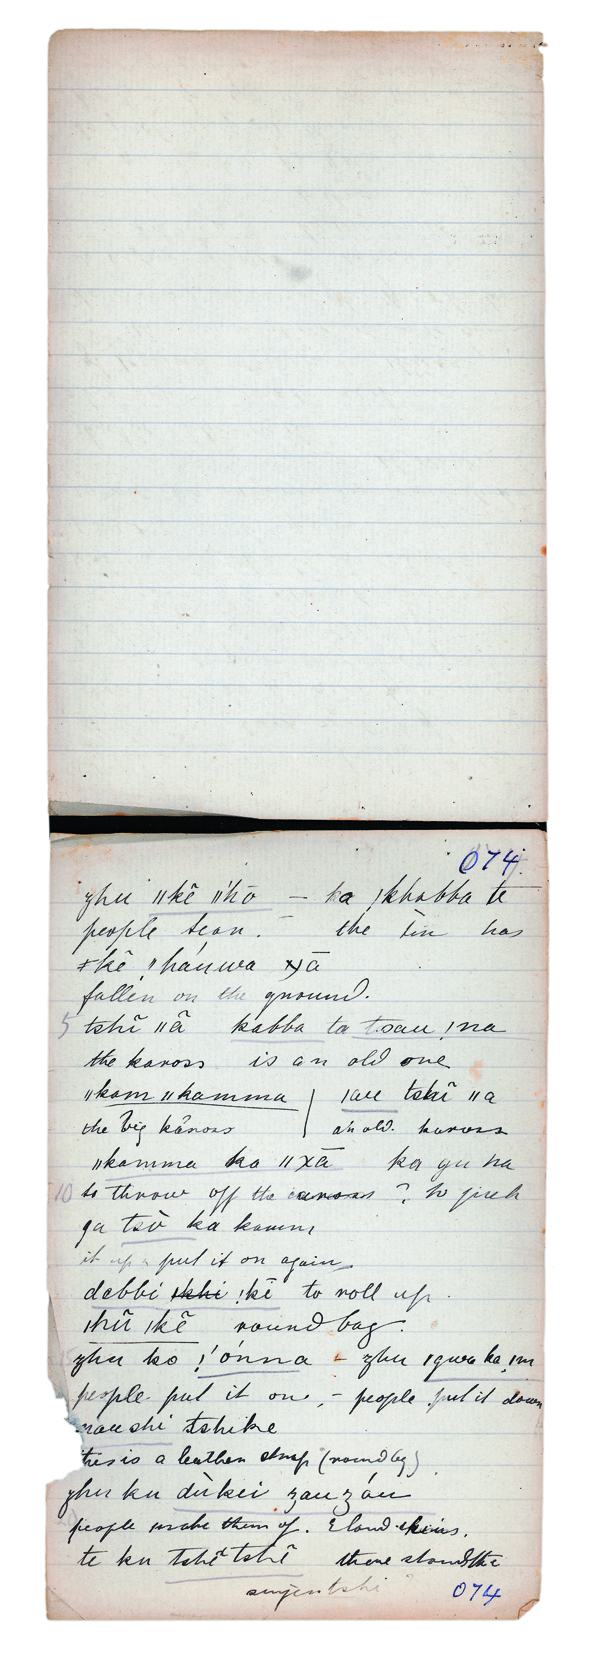 074
zhu ǁkē ǁhō — ha ǀkhabba te
people tear. — the tin has
ǂkē ǁhánwa ӿā
fallen on the ground.
5 tshĩ ǁã kabba ta tsau ǃna
the kaross is an old one
ǁkam ǁkamma | ǀau tshĩ ǁa
the big kaross | an old kaross
ǁkamma ka ǁχā ka gu na
10 to throw off the kaross ? to pick
ga tsò ka kamm
it up & put it on again
dabbi ǃkhi ǃkē to roll up.
ǀhū ǀkē round bag.
zhu ko ǃ'ónna – zhu ǀgwa ka ǃm
people put it on, – people put it down
naushi tshike
this is a leather strap (round bg)
zhu ku dùkei zauzáu
people make them of. Eland skins.
te ku tshētshē there stands the
074